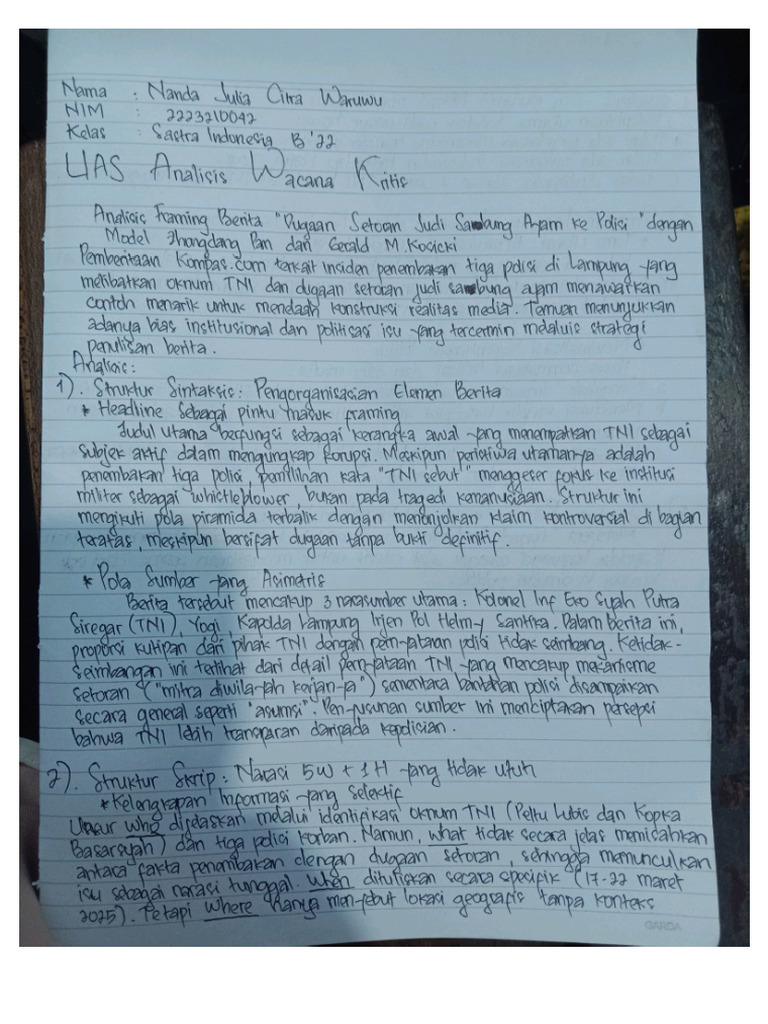 Nama : Nanda Julia Citra Waruwu
NIM : 2223210042
Kelas : Sastra Indonesia B '22
UAS Analisis Wacana Kritis
Analisis Framing Berita "Dugaan Setoran Judi Sambung Ayam ke Polisi" dengan
Model Zhongdang Pan dan Gerald M Kosicki
Pemberitaan Kompas.com terkait insiden penembakan tiga polisi di Lampung yang
melibatkan oknum TNI dan dugaan setoran judi sambung ayam menawarkan
contoh menarik untuk mendaah konstruksi realitas media. Temuan menunjukkan
adanya bias institusional dan politisasi isu yang tercermin melaluis strategi
penulisan berita.
Analisis:
1). Struktur Sintaksis: Pengorganisasian Elemen Berita
* Headline Sebagai pintu masuk framing
Judul utama berfungsi sebagai kerangka awal yang menempatkan TNI sebagai
subjek aktif dalam mengungkap korupsi. Meskipun peristiwa utamanya adalah
penembakan tiga polisi, pemilihan kata "TNI sebut" menggeser fokus ke institusi
militer sebagai whistleblower, bukan pada tragedi kemanusiaan. Struktur ini
mengikuti pola piramida terbalik dengan menonjolkan klaim kontroversial di bagian
teratas, meskipun bersifat dugaan tanpa bukti definitif.
* Pola Sumber yang Asimetris
Berita tersebut mencakup 3 narasumber utama: Kolonel Inf Eko Syah Putra
Siregar (TNI), Yogi, Kapolda Lampung Irjen Pol Helmy Santika. Dalam berita ini,
proporsi kutipan dari pihak TNI dengan pernyataan polisi tidak seimbang. Ketidak-
seimbangan ini terlihat dari detail pernyataan TNI yang mencakup mekanisme
setoran ("mitra diwilayah kerjanya") sementara bantahan polisi disampaikan
secara general seperti "asumsi". Penyusunan sumber ini menciptakan persepsi
bahwa TNI lebih transparan daripada kepolisian.
2). Struktur Skrip: Narasi 5W + 1H yang tidak utuh
* Kelengkapan Informasi yang selektif
Unsur who dijelaskan melalui identifikasi oknum TNI (Peltu Lubis dan Kopka
Basarsyah) dan tiga polisi korban. Namun, what tidak secara jelas memisahkan
antara fakta penembakan dengan dugaan setoran, sehingga memunculkan
isu sebagai narasi tunggal. When dituliskan secara spesifik (17-22 maret
2025). Tetapi where hanya menyebut lokasi geografis tanpa konteks
GARDA